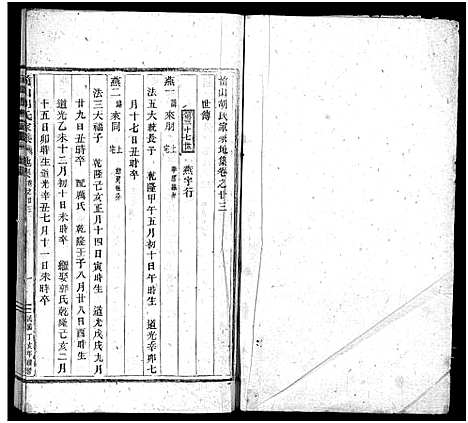 首山胡氏家乘地集卷之廿三
世傳
第三十七世 燕字行
燕一 諱來朋 宅上
法五大毓長子 乾隆甲午五月初十日午時生 道光辛卯七
月十七日丑時卒
燕二 諱來同 宅上
法三大福子 乾隆己亥正月十四日寅時生 道光戊戌九月
廿九日丑時卒 配 氏 乾隆壬子八月廿八日酉時生
道光乙未十二月初十日未時卒 繼娶郭氏乾隆己亥二月
十五日卯時生道光辛丑七月十一日未時卒
首山胡氏家乘 地集
一
民國丁亥年